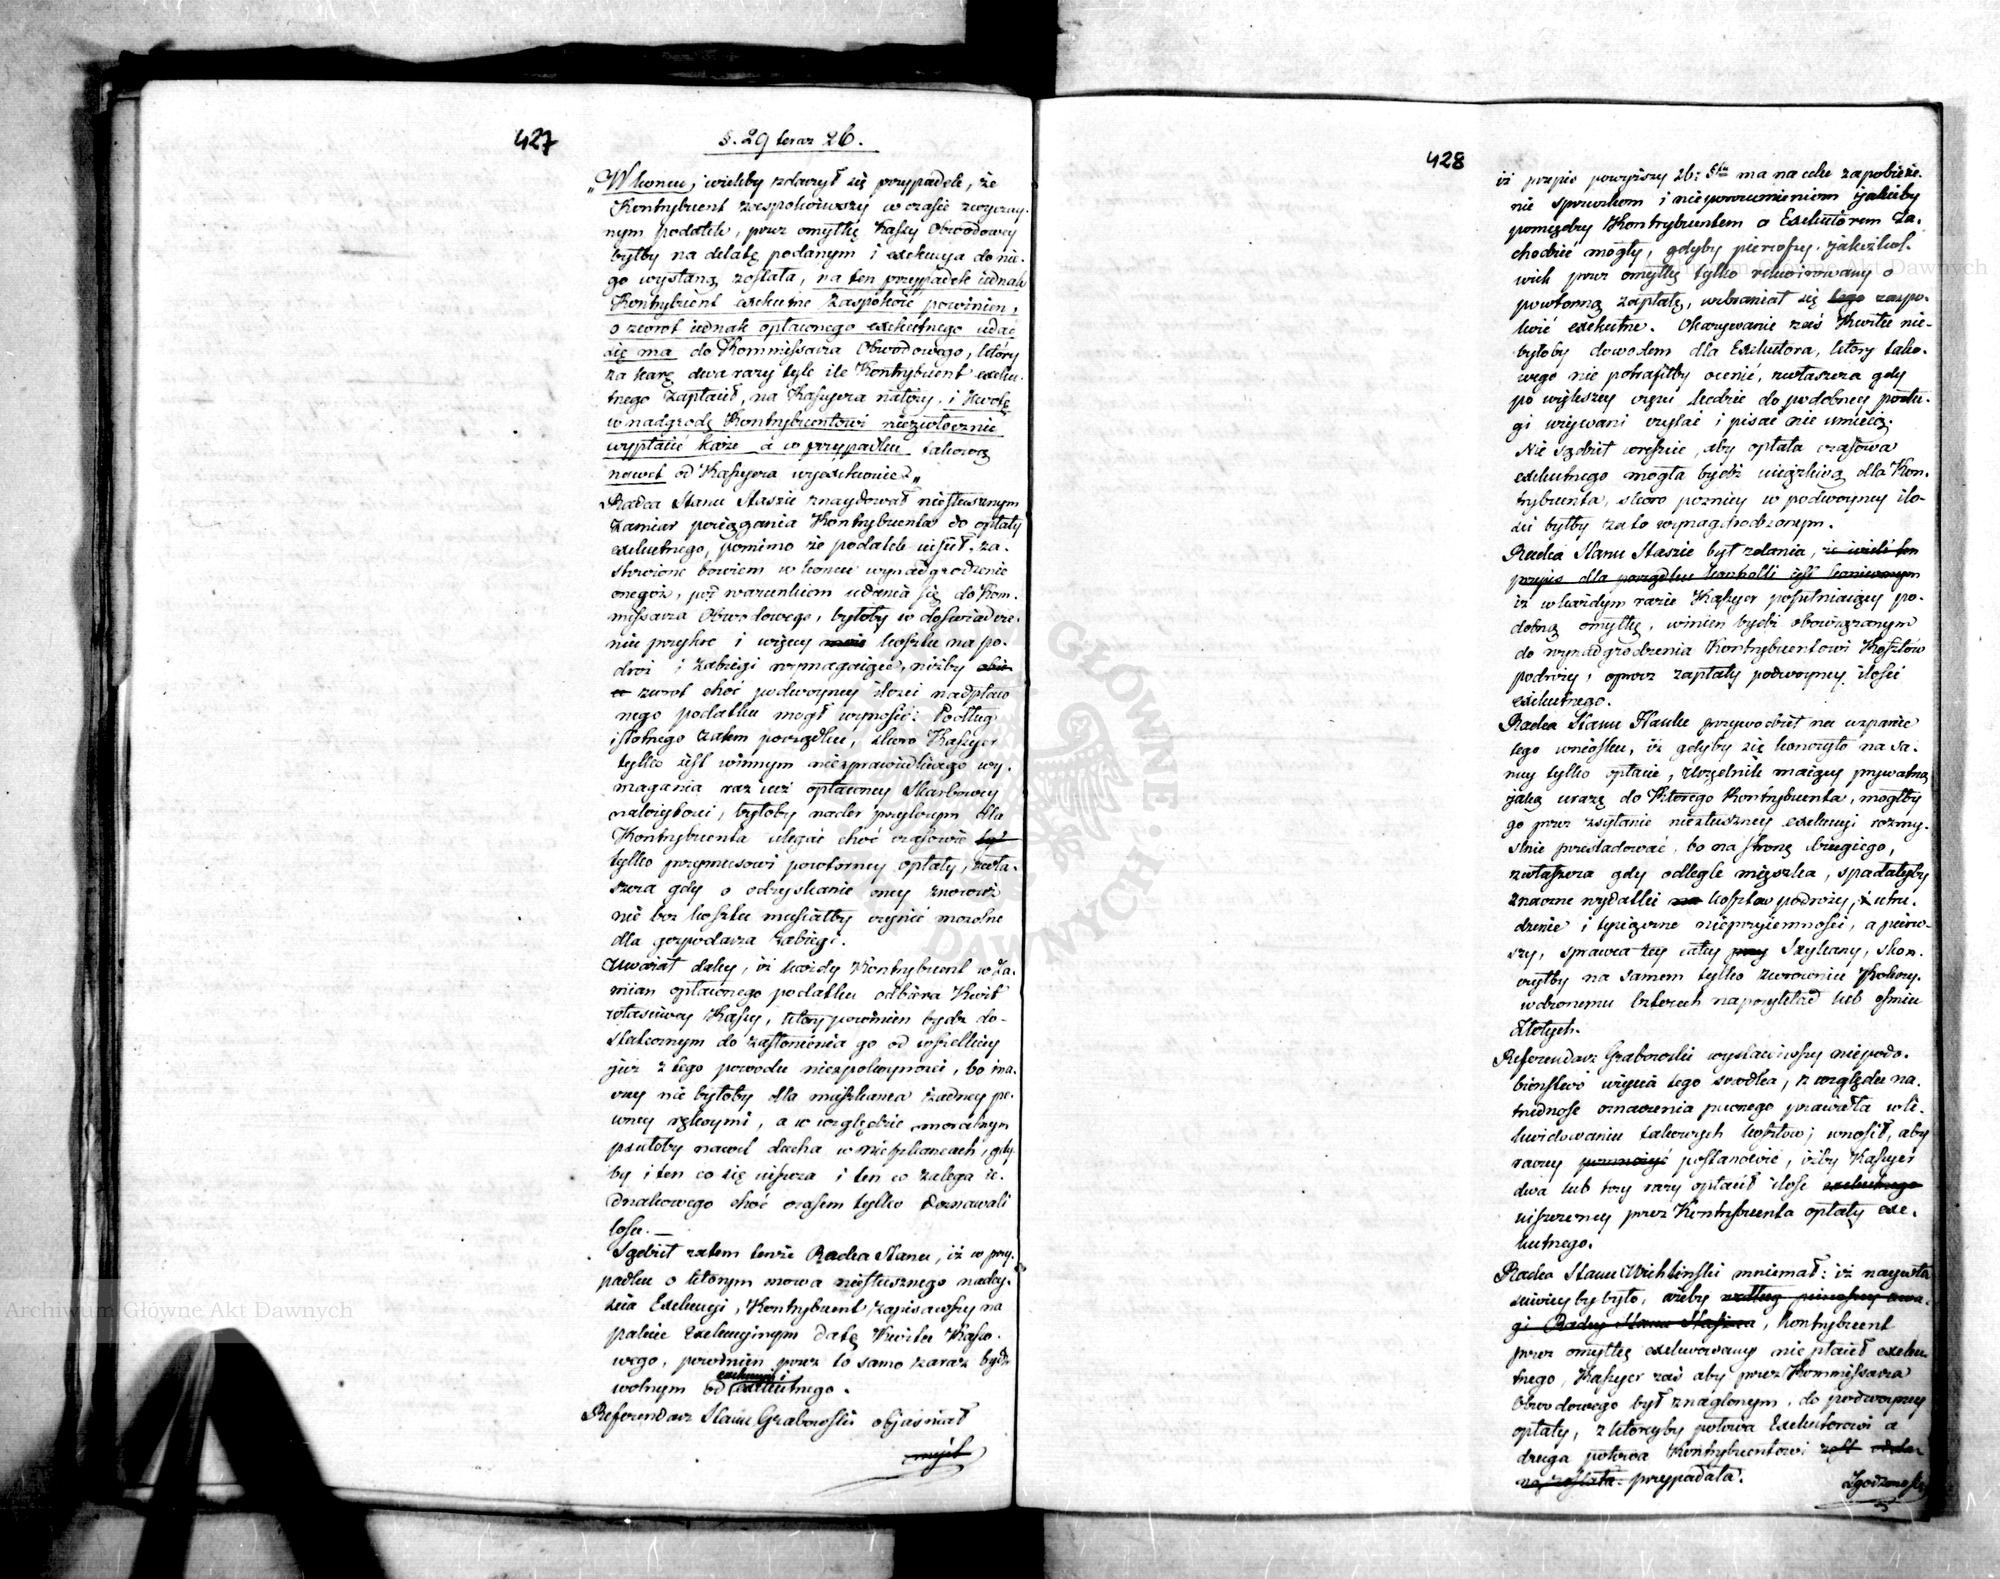 427
§. 29 teraz 26.
„W koncu, ieżeliby zdarzył się przypadek, że
Kontrybuent zaspokoiwszy w czasie zwyczay-
nym podatek, przez omyłkę Kassy Obwodowey
byłby na delatę podanym i exekucya do nie-
go wysłaną została, na ten przypadek iednak
Kontrybuent exekutne zaspokoić powinien,
o zwrot iednak opłaconego exekutnego udać
się ma do Kommissarza Obwodowego, który
za karę dwa razy tyle ile Kontrybuent exeku-
tnego zapłacił, na Kassyera nałoży, i kwotę
w nadgrodę Kontrybuentowi niezwłocznie
wypłacić każe a w przypadku takową
nawet od Kassyera wyexekwuie.„
Radca Stanu Staszic znaydował niesłusznym
zamiar pociągania Kontrybuenta do opłaty
exekutnego, pomimo że podatek uiścił, za-
strzeżone bowiem w koncu wynadgrodzenie
onegoż, pod warunkiem udania się do Kom-
missarza Obwodowego, byłoby w doświadcze-
niu przykre i więcey kosztu na po-
droż i zabiegi wymagaiące, niżby
zwrot choć podwoyney ilości nadpłaco
nego podatku mógł wynosić: Podług
istotnego zatem porządku, skoro Kassyer
tylko iest winnym niesprawiedliwego wy-
magania raz iuż opłaconey Skarbowey
należytości, byłoby nader przykrym dla
Kontrybuenta ulegać choć czasowie
tylko przymusowi powtorney opłaty, zwła-
szcza gdy o odzyskanie oney znowuż
nie bez kosztu musiałby czynić mozolne
dla gospodarza zabiegi.
Uważał daley, iż każdy Kontrybuent w za-
mian opłaconego podatku odbiera Kwit
właściwey Kassy, który powinien bydź do-
statecznym do zasłonienia go od wszelkiey
już z tego powodu niespokoyności, bo ina-
czey nie byłoby dla mieszkańca żadney pe-
wney rękoymi, a w względzie moralnym
psułoby nawet ducha w mieszkancach, gdy
by i ten co się uiszcza i ten co zalega ie-
dnakowego choć czasem tylko doznawali
losu. —
Sądził zatem tenże Radca Stanu, iż w przy-
padku o którym mowa niesłusznego nadey-
ścia Exekucyi, Kontrybuent zapisawszy na
palecie Exekucyinym datę Kwitu Kasso-
wego, powinien przez to samo zaraz bydź
exekucyi i
wolnym od exekutnego.
Referendarz Stanu Grabowski objaśniał
428
iż przepis powyższy 26: §fu ma na celu zapobieże-
nie sporom i nieporozumieniom jakieby
pomiędzy Kontrybuentem a Exekutorem za-
chodzić mogły, gdyby pierwszy, jakożkol-
wiek przez omyłkę tylko rekwirowany o
powtorną zapłatę, wzbraniał się tego zaspo-
koić exekutne. Okazywanie zaś Kwitu nie-
byłoby dowodem dla Exekutora, który tako-
wego nie potrafiłby ocenić, zwłaszcza gdy
po większey części ludzie do podobney posłu-
gi używani czytać i pisać nie umieią.
Nie sądził wreszcie, aby opłata czasowa
exekutnego mogła bydź uciążliwą dla Kon-
trybuenta, skoro pozniey w podwoyney ilo-
ści byłby za to wynagrodzonym.
Radca Stanu Staszic był zdania, że ieżeli ten
przepis dla porządku kontrolli iest koniecznym
iż w każdym razie Kassyer pospełniaiący po-
dobną omyłkę, winien bydź obowiązanym
do wynadgrodzenia Kontrybuentowi Kosztów
podroży, oprocz zapłaty podwoyney ilości
exekutnego.
Radca Stanu Hauke przywodził na wsparcie
tego wniosku, iż gdyby się konczyło na sa-
mey tylko opłacie, Urzędnik maiący prywatną
jaką urazę do którego Kontrybuenta, mógłby
go przez zsyłanie niesłuszney exekucyi rozmy-
ślnie prześladować, bo na stronę drugiego,
zwłaszcza gdy odlegle mieszka, spadałyby
znaczne wydatki na kosztow podroży, i utru-
dzenie i tysiączne nieprzyiemności, a pierw-
szy, sprawca tey całey Szykany, skon-
czyłby na samem tylko zwroceniu Pokrzy-
wdzonemu czterech naprzykład lub ośmiu
złotych.
Referendarz Grabowski wystawiwszy niepodo-
bieństwo użycia tego środka, z względu na
trudność oznaczenia pewnego prawidła w li-
kwidowaniu takowych kosztow; wnosił, aby
raczey pomnożyć postanowić, iżby Kassyer
dwa lub trzy razy opłacił ilość exekutnego
uiszczoney przez Kontrybuenta opłaty exe-
kutnego.
Radca Stanu Wichliński mniemał: iż naywła
ściwiey by było, ażeby według pierwszey uwa-
gi Radcy Stanu Staszica, Kontrybuent
przez omyłkę exekwowany nie płacił exeku-
tnego, Kassyer zaś aby przez Kommissarza
Obwodowego był znaglonym, do podwoyney
opłaty, z któreyby połowa Exekutorowi a
druga połowa Kontrybuentowi
przypadała.
Zgodzono się
Archiwum Główne Akt Dawnych